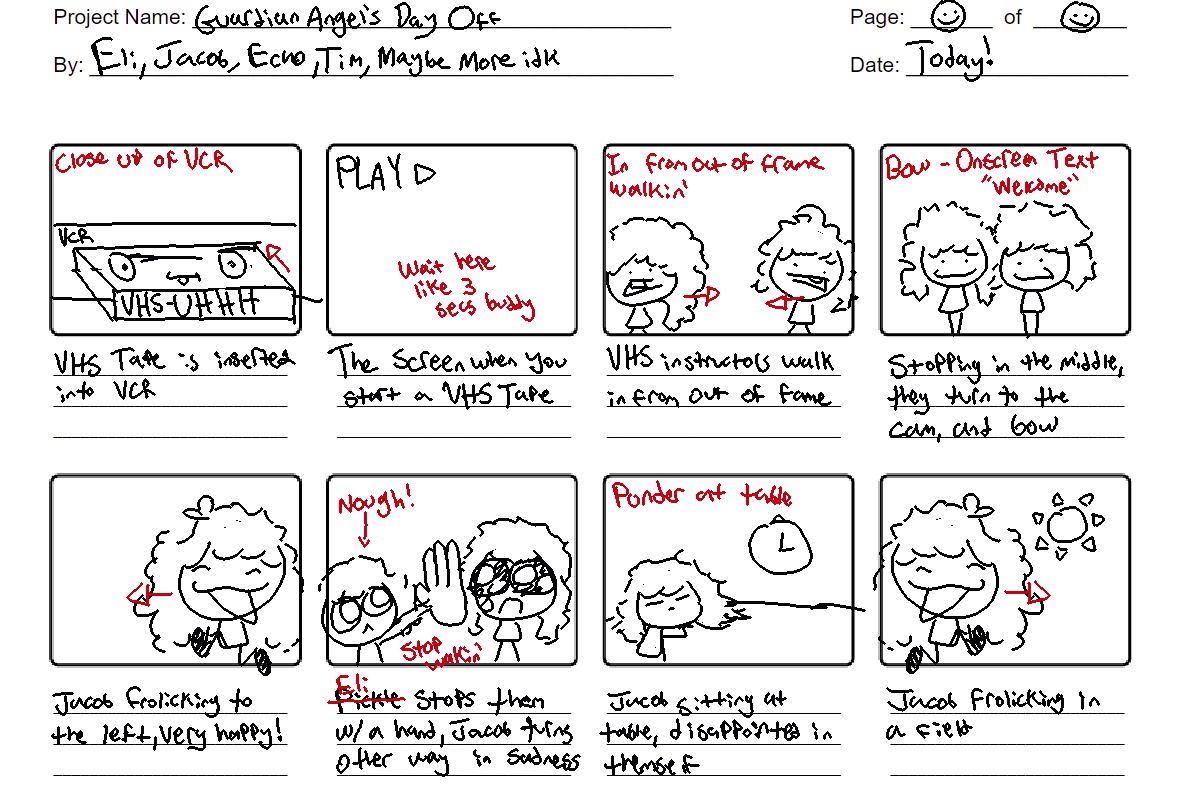 Project Name: Guardian Angel's Day Off
Page: of
By: Eli, Jacob, Echo, Tim, Maybe More idk
Date: Today!
Close up of VCR
VCR
VHS-UHHH
VHS Tape is inserted
into VCR
PLAY
Wait here
like 3
secs buddy
The Screen when you
start a VHS Tape
In from out of frame
walkin'
VHS instructors walk
in from out of fame
Bow - Onscreen Text
"Welcome"
Stopping in the middle,
they turn to the
cam, and bow
Jacob frolicking to
the left, very happy!
Nough!
Stop
walkin'
Eli
Pickle stops them
w/ a hand, Jacob turns
other way in sadness
Ponder at table
Jacob sitting at
table, disappointed in
themself
Jacob frolicking in
a field